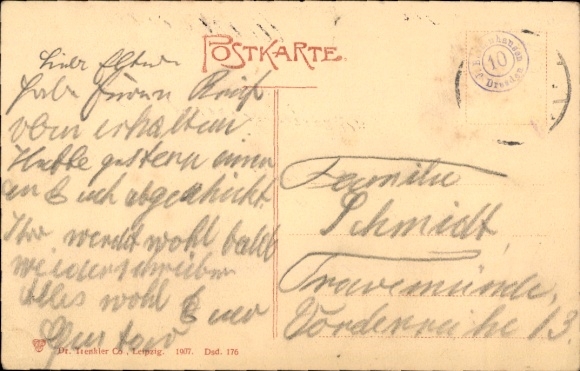 POSTKARTE
Liebe Eltern
habe Euren Brief
oben erhalten
Hatte gestern einen
an Euch abgeschickt.
Ihr werdet wohl bald
wiederschreiben
Alles wohl Euer
Gustav
10
Dresden
Familie
Schmidt,
Travemünde,
Vorderreihe 13.
Dr. Trenkler Co., Leipzig. 1907. Dsd. 176